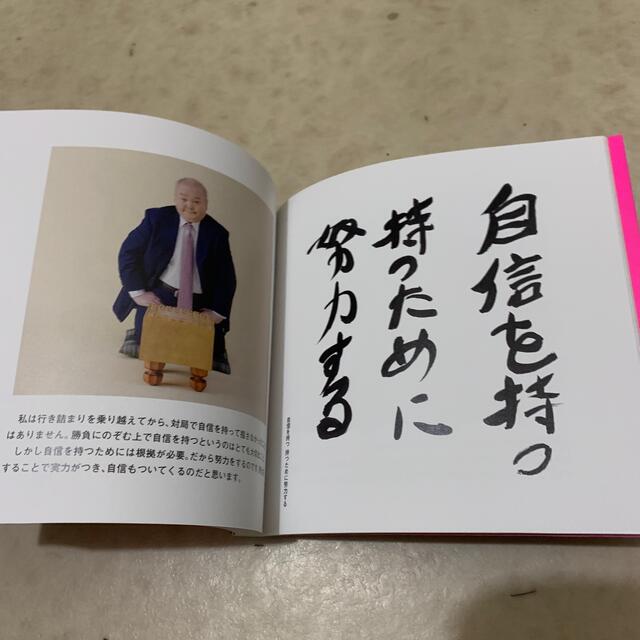 私は行き詰まりを乗り越えてから、対局で自信を持って指さ
はありません。勝負にのぞむ上で自信を持つというのはとても大
しかし自信を持つためには根拠が必要。だから努力をするのです。
することで実力がつき、自信もついてくるのだと思います。
自信を持つ
持つために
努力する
自信を持つ 持つために努力する